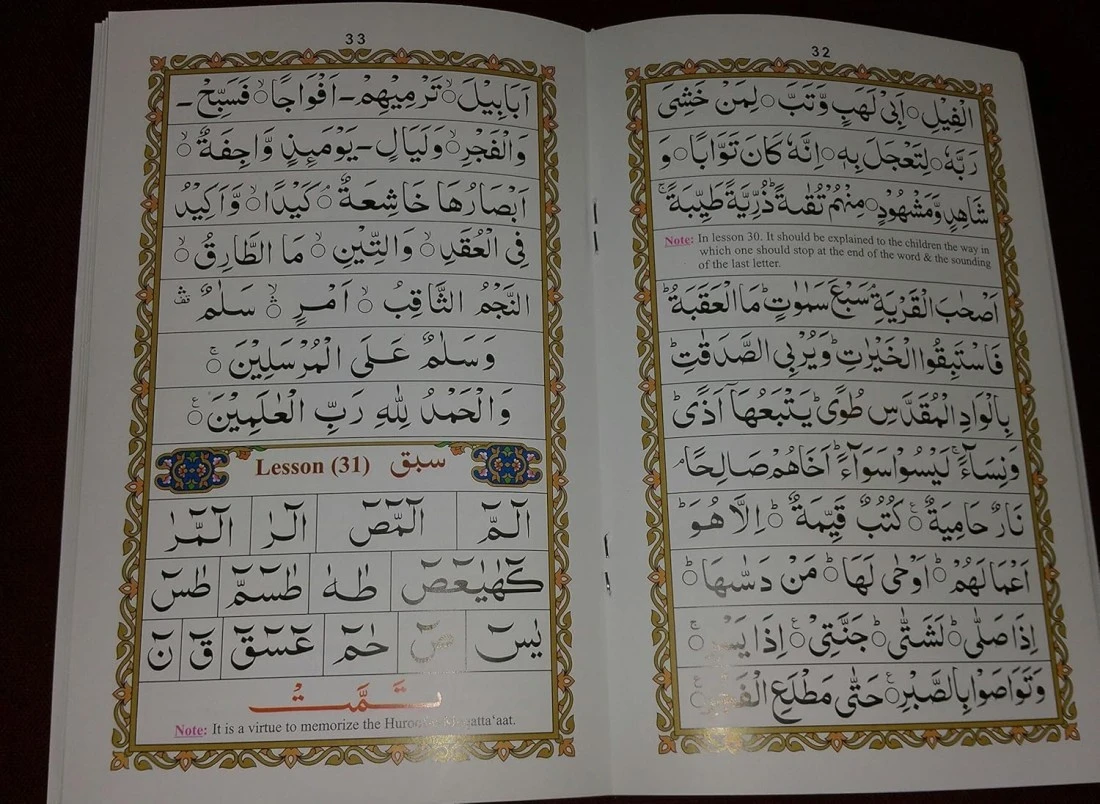 32
الْفِيْلِ ○ اَبِیْ لَهَبٍ وَّتَبَّ ○ لِمَنْ خَشِیَ
رَبَّهٗ ○ لِتَعْجَلَ بِهٖ ○ اِنَّهٗ كَانَ تَوَّابًا ○ وَ
شَاهِدٍ وَّمَشْهُوْدٍ ○ مِنْهُمْ تُقٰىةً ذُرِّيَّةً طَيِّبَةً ۚ
Note: In lesson 30. It should be explained to the children the way in
which one should stop at the end of the word & the sounding
of the last letter.
اَصْحٰبَ الْقَرْيَةِ ۘ سَبْعَ سَمٰوٰتٍ ؕ مَا الْعَقَبَةُ ؕ
فَاسْتَبِقُوا الْخَيْرٰتِ ؕ وَيُرْبِی الصَّدَقٰتِ ؕ
بِالْوَادِ الْمُقَدَّسِ طُوًی ؕ يَتْبَعُهَاۤ اَذًی ؕ
وَنِسَآءً ۚ لَيْسُوْا سَوَآءً ؕ اَخَاهُمْ صَالِحًا ۘ
نَارٌ حَامِيَةٌ ○ۧ كُتُبٌ قَيِّمَةٌ ○ؕ اِلَّا هُوَ ؕ
اَعْمَالَهُمْ ○ؕ اَوْحٰی لَهَا ○ؕ مَنْ دَسّٰىهَا ○ؕ
اِذَا صَلّٰی ○ؕ لَشَتّٰی ○ؕ جَنَّتِیْ ○ۧ اِذَا يَسْرِ ○ۚ
وَتَوَاصَوْا بِالصَّبْرِ ○ۧ حَتّٰی مَطْلَعِ الْفَجْرِ ○ۧ
33
اَبَابِيْلَ ○ۙ تَرْمِيْهِمْ ـ اَفْوَاجًا ○ۙ فَسَبِّحْ ـ
وَالْفَجْرِ ○ۙ وَلَيَالٍ ـ يَوْمَئِذٍ وَّاجِفَةٌ ○ۙ
اَبْصَارُهَا خَاشِعَةٌ ○ۘ كَيْدًا ○ۙ وَّاَكِيْدُ
فِی الْعُقَدِ ○ۙ وَالتِّيْنِ ○ۙ مَا الطَّارِقُ ○ۙ
النَّجْمُ الثَّاقِبُ ○ۙ اَمْرٍ ○ۙ سَلٰمٌ
وَسَلٰمٌ عَلَی الْمُرْسَلِيْنَ ○ۚ
وَالْحَمْدُ لِلّٰهِ رَبِّ الْعٰلَمِيْنَ ○ۧ
Lesson (31) سبق
الٓمّٓ الٓمّٓصٓ الٓرٰ الٓمّٓرٰ
كٓهٰيٰعٓصٓ طٰهٰ طٰسٓمّٓ طٰسٓ
يٰسٓ صٓ حٰمٓ عٓسٓقٓ قٓ نٓ
تَمَّتْ
Note: It is a virtue to memorize the